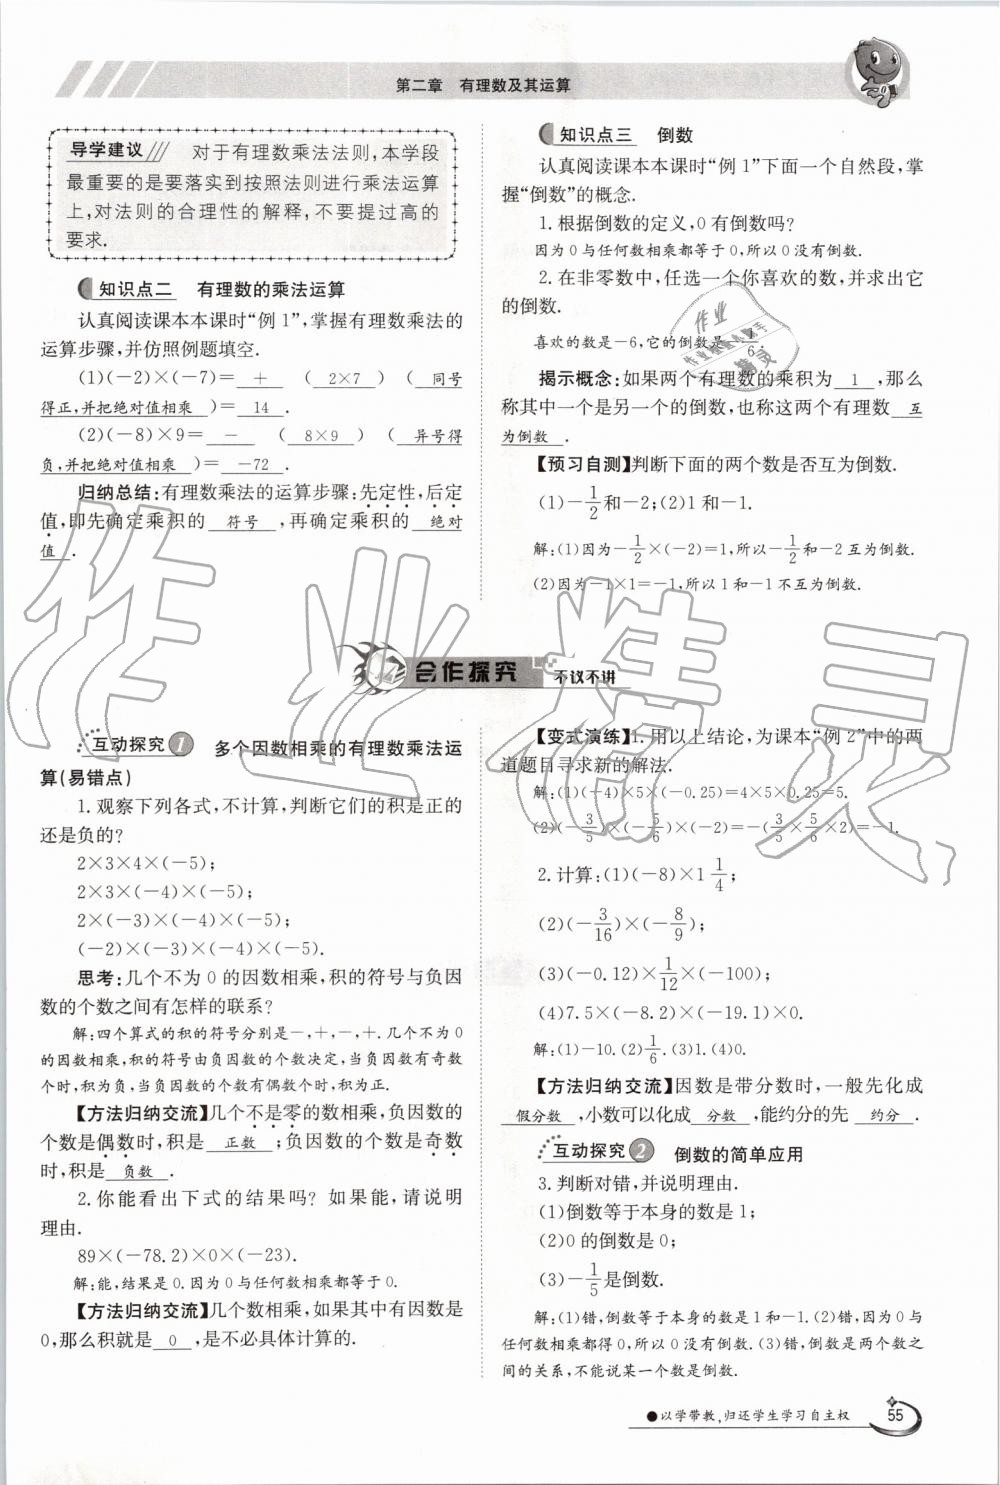 第二章 有理数及其运算
导学建议/// 对于有理数乘法法则,本学段
最重要的是要落实到按照法则进行乘法运算
上,对法则的合理性的解释,不要提过高的
要求.
知识点二 有理数的乘法运算
认真阅读课本本课时“例1”,掌握有理数乘法的
运算步骤,并仿照例题填空.
(1)(-2)×(-7)= + ( 2×7 ) ( 同号
得正,并把绝对值相乘 )= 14 .
(2)(-8)×9= - ( 8×9 ) ( 异号得
负,并把绝对值相乘 )= -72 .
归纳总结:有理数乘法的运算步骤:先定性,后定
值,即先确定乘积的 符号 ,再确定乘积的 绝对
值 .
知识点三 倒数
认真阅读课本本课时“例1”下面一个自然段,掌
握“倒数”的概念.
1.根据倒数的定义,0有倒数吗?
因为0与任何数相乘都等于0,所以0没有倒数.
2.在非零数中,任选一个你喜欢的数,并求出它
的倒数.
喜欢的数是-6,它的倒数是
揭示概念:如果两个有理数的乘积为 1 ,那么
称其中一个是另一个的倒数,也称这两个有理数 互
为倒数 .
【预习自测】判断下面的两个数是否互为倒数.
(1)-1/2和-2;(2)1和-1.
解:(1)因为-1/2×(-2)=1,所以-1/2和-2互为倒数.
(2)因为-1×1=-1,所以1和-1不互为倒数.
合作探究 不议不讲
互动探究1 多个因数相乘的有理数乘法运
算(易错点)
1.观察下列各式,不计算,判断它们的积是正的
还是负的?
2×3×4×(-5);
2×3×(-4)×(-5);
2×(-3)×(-4)×(-5);
(-2)×(-3)×(-4)×(-5).
思考:几个不为0的因数相乘,积的符号与负因
数的个数之间有怎样的联系?
解:四个算式的积的符号分别是-,+,-,+.几个不为0
的因数相乘,积的符号由负因数的个数决定,当负因数有奇数
个时,积为负,当负因数的个数有偶数个时,积为正.
【方法归纳交流】几个不是零的数相乘,负因数的
个数是偶数时,积是 正数 ;负因数的个数是奇数
时,积是 负数 .
2.你能看出下式的结果吗?如果能,请说明
理由.
89×(-78.2)×0×(-23).
解:能,结果是0.因为0与任何数相乘都等于0.
【方法归纳交流】几个数相乘,如果其中有因数是
0,那么积就是 0 ,是不必具体计算的.
【变式演练】1.用以上结论,为课本“例2”中的两
道题目寻求新的解法.
解:(1)(-4)×5×(-0.25)=4×5×0.25=5.
(2)(-3/5)×(-5/6)×(-2)=-(3/5×5/6×2)=-1.
2.计算:(1)(-8)×1 1/4;
(2)(-3/16)×(-8/9);
(3)(-0.12)×1/12×(-100);
(4)7.5×(-8.2)×(-19.1)×0.
解:(1)-10.(2)1/6.(3)1.(4)0.
【方法归纳交流】因数是带分数时,一般先化成
假分数 ,小数可以化成 分数 ,能约分的先 约分 .
互动探究2 倒数的简单应用
3.判断对错,并说明理由.
(1)倒数等于本身的数是1;
(2)0的倒数是0;
(3)-1/5是倒数.
解:(1)错,倒数等于本身的数是1和-1.(2)错,因为0与
任何数相乘都得0,所以0没有倒数.(3)错,倒数是两个数之
间的关系,不能说某一个数是倒数.
●以学带教,归还学生学习自主权 55
作业精灵